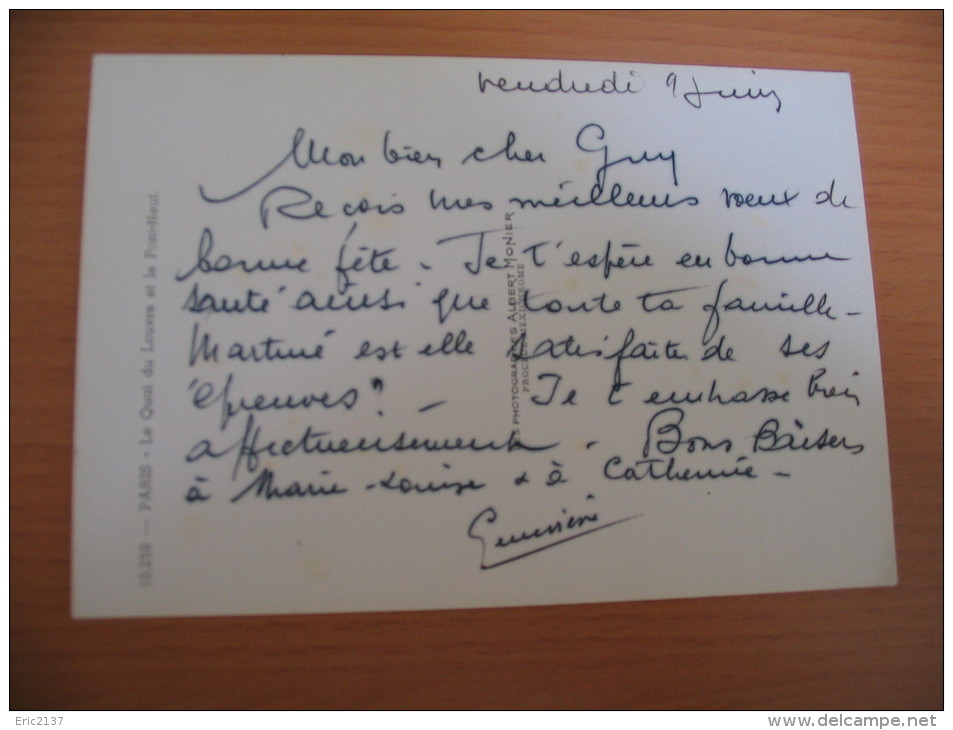 vendredi 9 Juin
Mon bien cher Guy
Reçois mes meilleurs voeux de
bonne fête - Je t'espère en bonne
santé ainsi que toute ta famille -
Martine est elle satisfaite de ses
épreuves ? - Je t'embrasse bien
affectueusement - Bons Baisers
à Marie-Louise & à Catherine -
Geneviève
10.253 — PARIS - Le Quai du Louvre et le Pont-Neuf.
PHOTOGRAPHIES ALBERT MONIER
Eric2137
www.delcampe.net